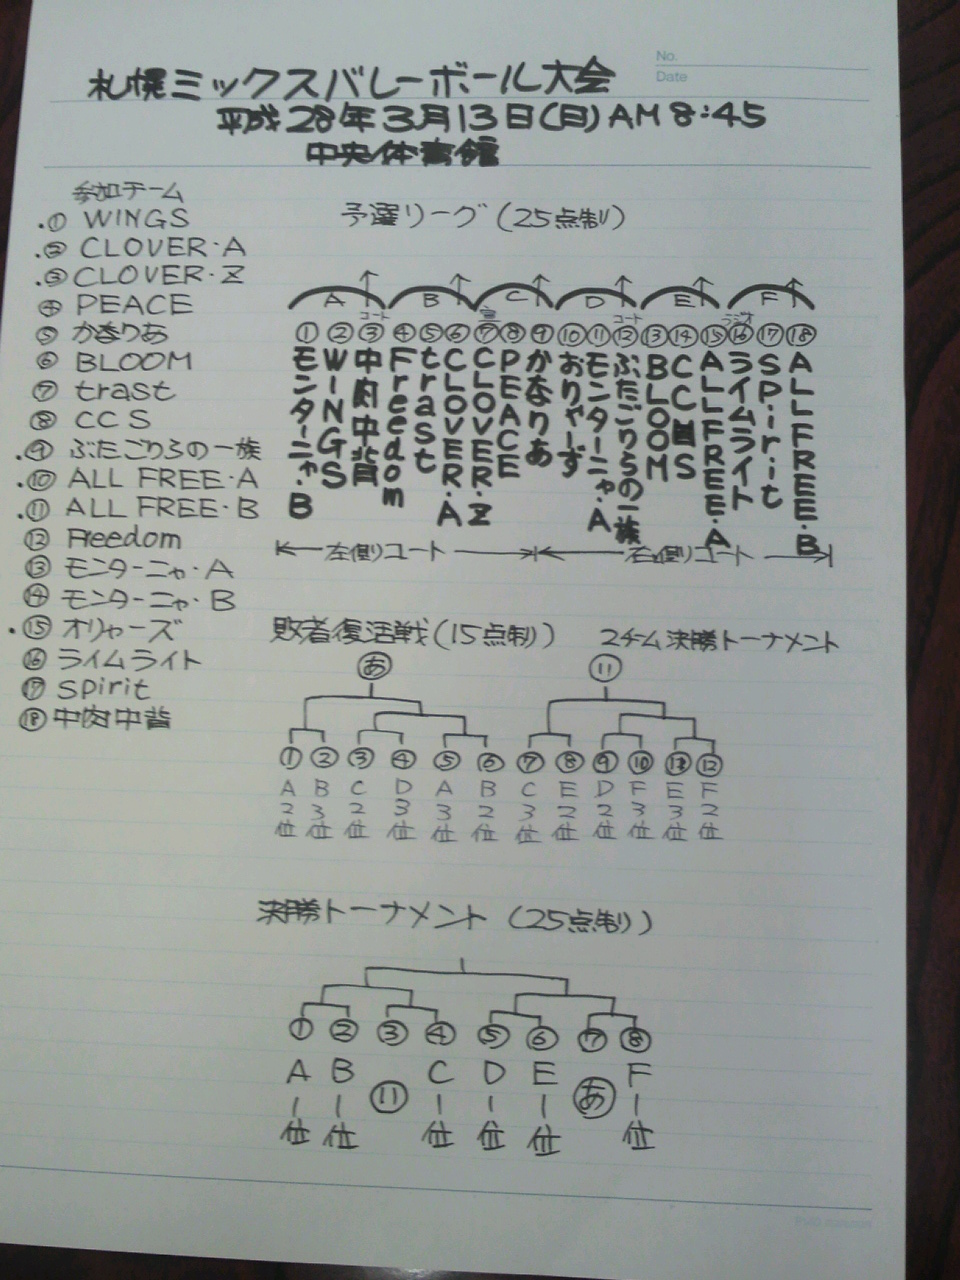 No.
Date
札幌ミックスバレーボール大会
平成28年3月13日(日)AM8:45
中央体育館
参加チーム
① WINGS
② CLOVER・A
③ CLOVER・Z
④ PEACE
⑤ かなりあ
⑥ BLOOM
⑦ trast
⑧ CCS
⑨ ぶたごりらの一族
⑩ ALL FREE・A
⑪ ALL FREE・B
⑫ Freedom
⑬ モンターニャ・A
⑭ モンターニャ・B
⑮ オリャーズ
⑯ ライムライト
⑰ spirit
⑱ 中肉中背
予選リーグ(25点制)
A B C D E F
コート コート ラジオ
① ② ③ ④ ⑤ ⑥ ⑦ ⑧ ⑨ ⑩ ⑪ ⑫ ⑬ ⑭ ⑮ ⑯ ⑰ ⑱
モンターニャ・B
WINGS
中肉中背
Freedom
trast
CLOVER・A
CLOVER・Z
PEACE
かなりあ
おりゃーず
モンターニャ・A
ぶたごりらの一族
BLOOM
CCS
ALLFREE・A
ライムライト
SPirit
ALLFREE・B
左側コート 右側コート
敗者復活戦(15点制) 2チーム決勝トーナメント
あ い
① ② ③ ④ ⑤ ⑥ ⑦ ⑧ ⑨ ⑩ ⑪ ⑫
A2位 B3位 C2位 D3位 A3位 B2位 C3位 E2位 D2位 F3位 E3位 F2位
決勝トーナメント(25点制)
① ② ③ ④ ⑤ ⑥ ⑦ ⑧
A一位 B一位 い C一位 D一位 E一位 あ F一位